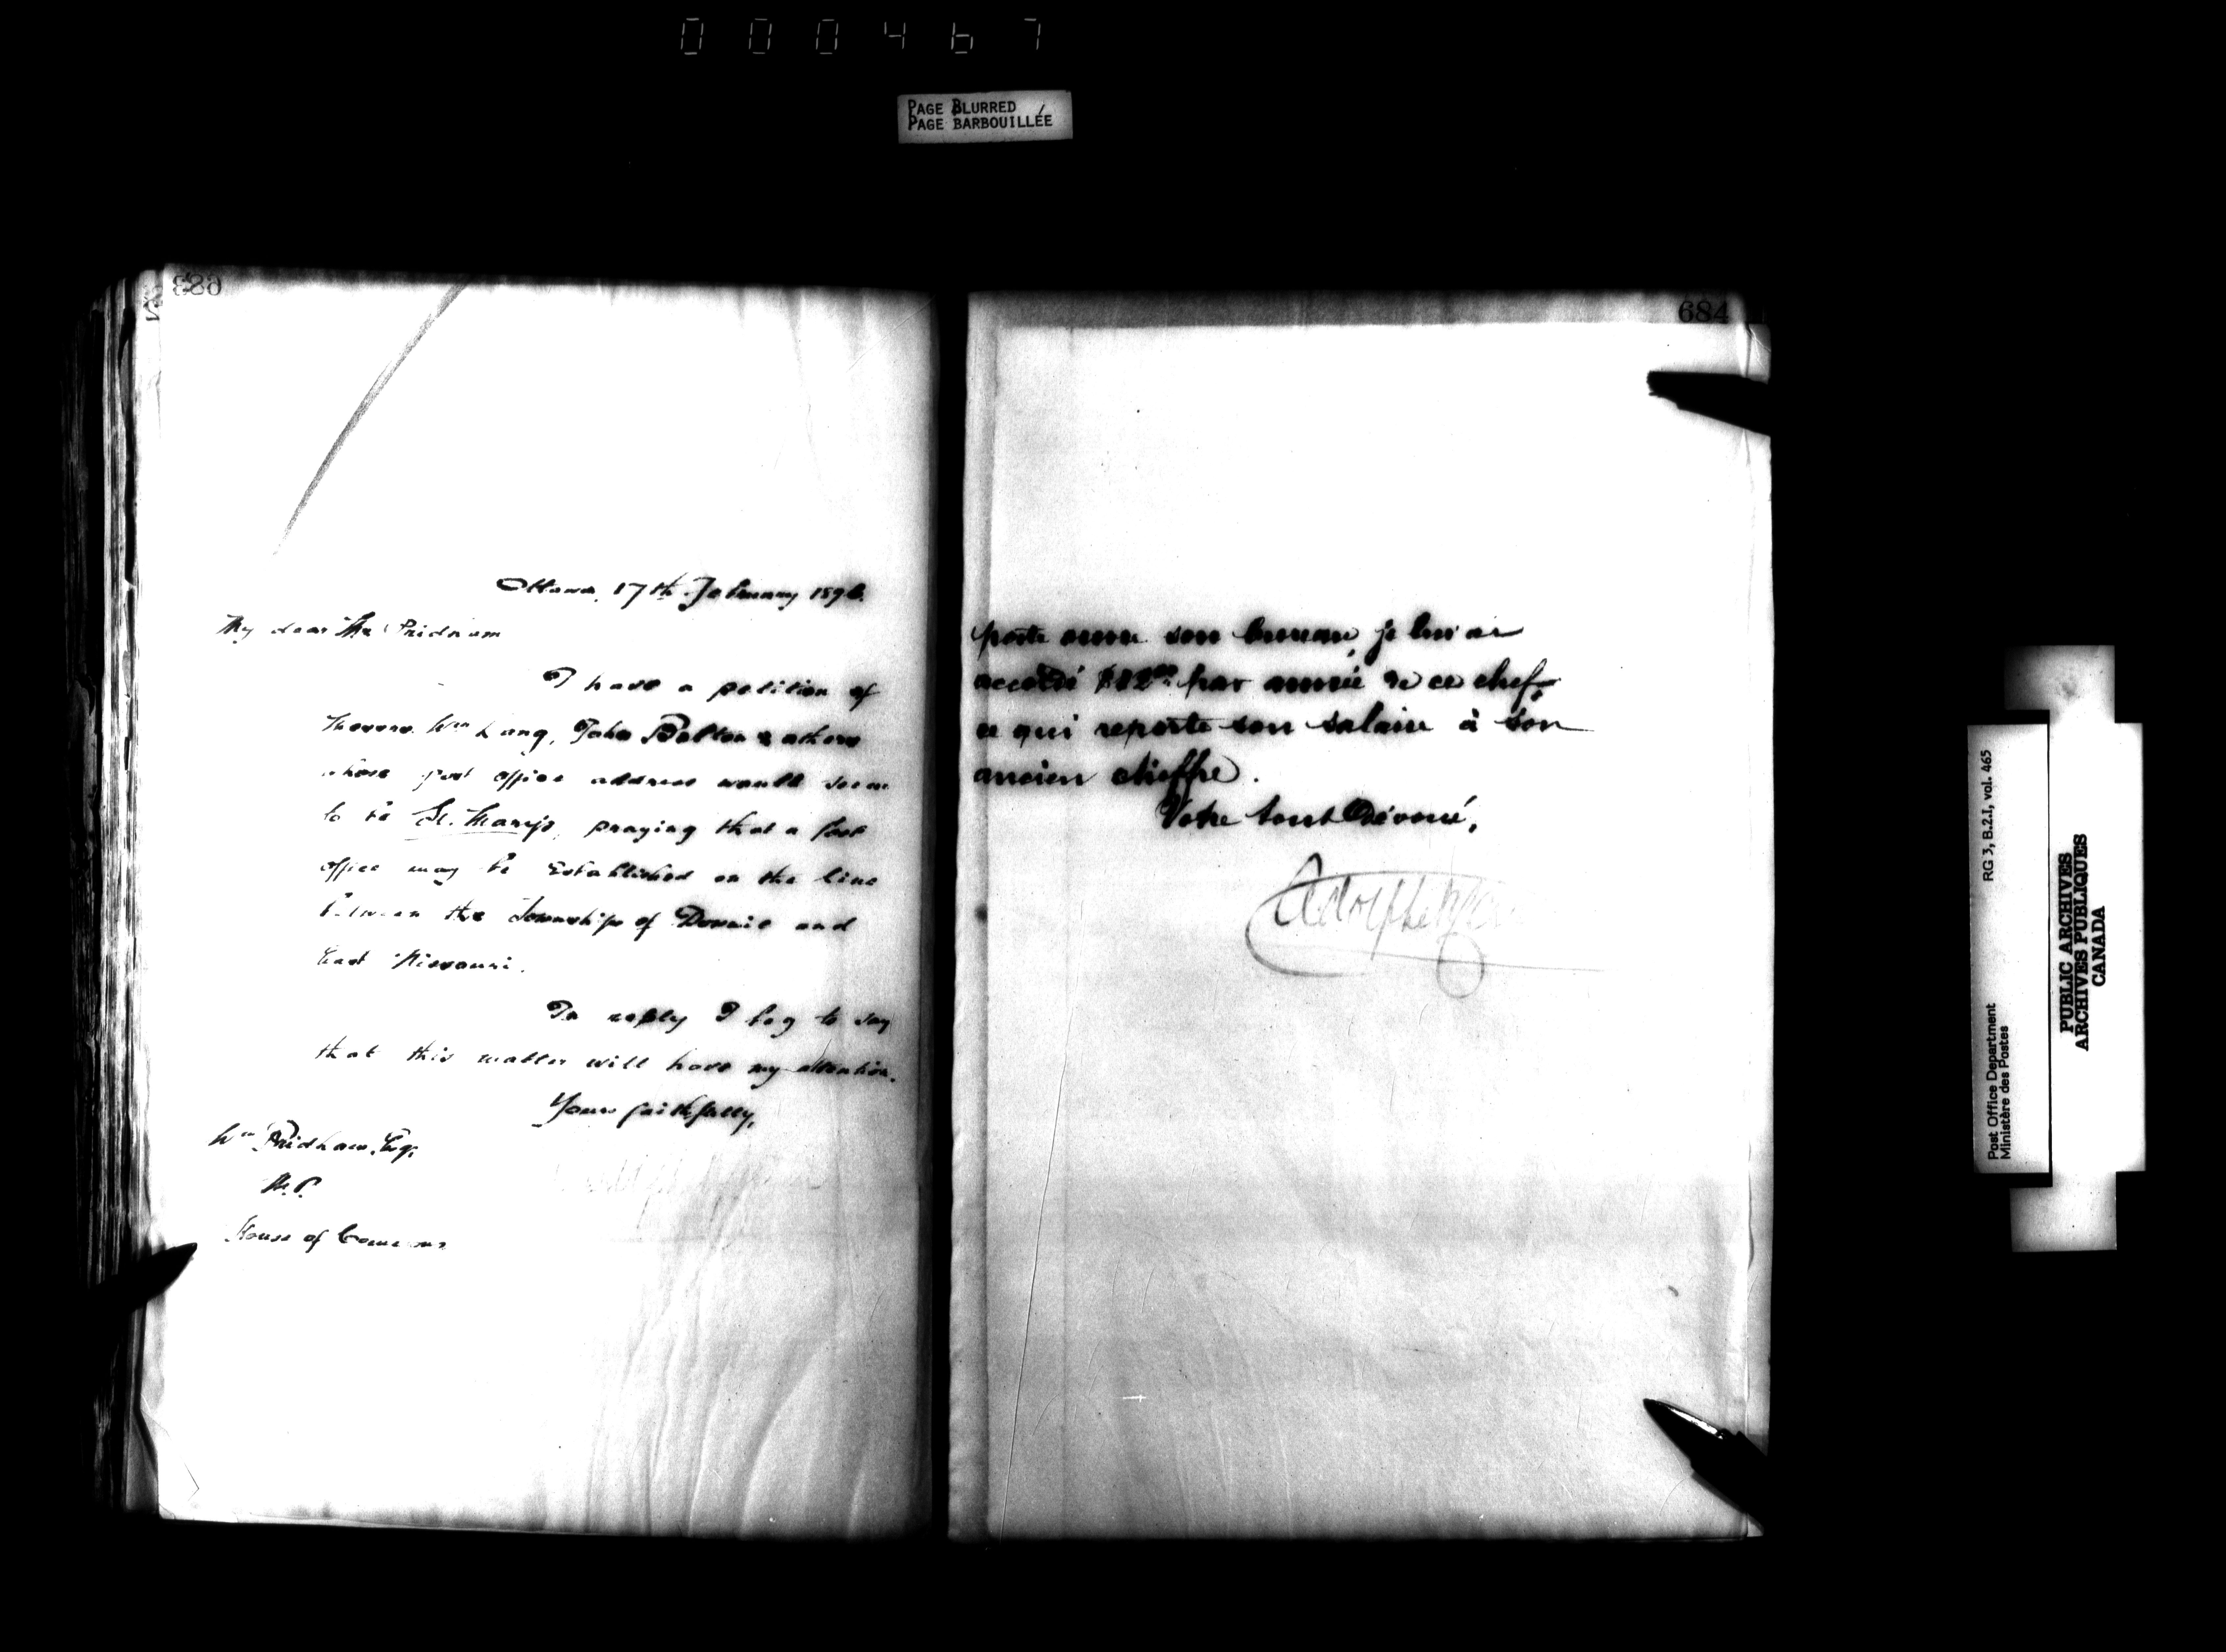 000467
PAGE BLURRED
PAGE BARBOUILLÉE
683
Ottawa, 17th February 1896.
My dear Mr Pridham
I have a petition of
Messrs. Wm Lang, John Bolton & others
whose post office address would seem
to be St. Mary's, praying that a Post
office may be Established on the line
between the Townships of Downie and
East Nissouri.
In reply I beg to say
that this matter will have my attention.
Yours faithfully,
Wm Pridham, Esq,
M.P.
House of Commons
684
porte son bureau, je lui ai
accordé par année de ce chef,
ce qui reporte son salaire à son
ancien chiffre.
Votre tout dévoué,
Adolphe
RG 3, B.2.I, vol. 465
Post Office Department
Ministère des Postes
PUBLIC ARCHIVES
ARCHIVES PUBLIQUES
CANADA